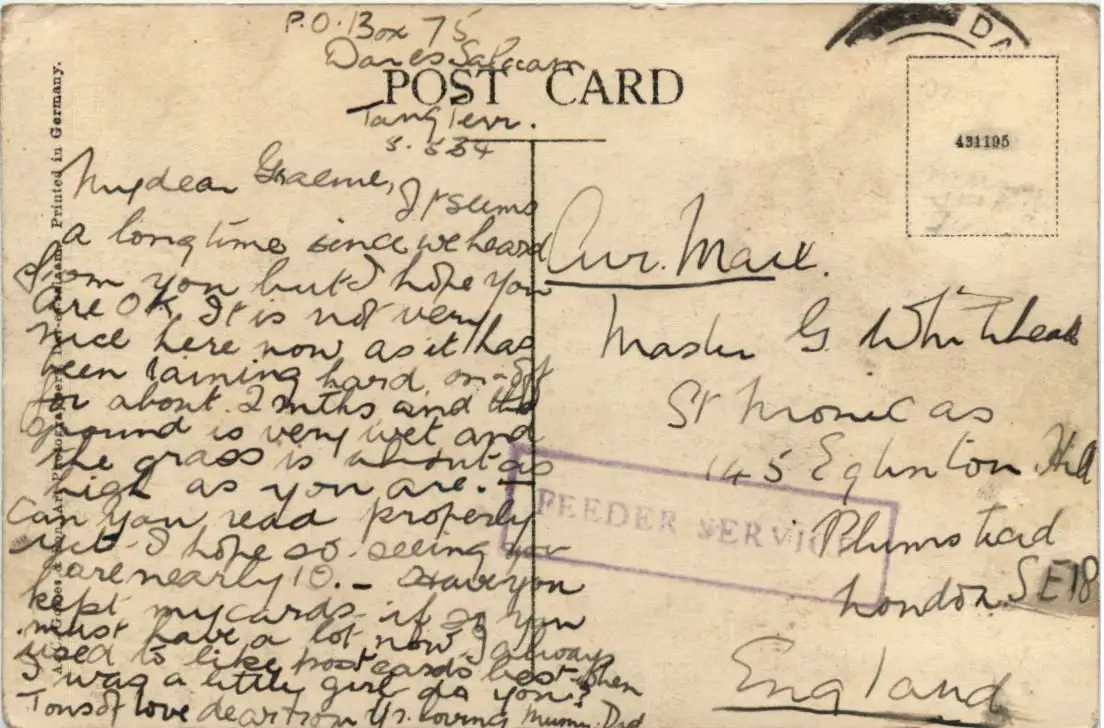 P.O. Box 75
Dar es Salaam
POST CARD
Tang Terr.
5.534
My dear Graeme,
It seems
a long time since we heard
from you but I hope you
are OK. It is not very
nice here now as it has
been raining hard on & off
for about 2 mths and the
ground is very wet and
the grass is about as
high as you are. –
Can you read properly
yet I hope so seeing you
are nearly 10. – Have you
kept my cards if so you
must have a lot now I always
used to like postcards best when
I was a little girl do you?
Tons of love dear from Yr. loving Mumm. Dad
DA
431195
Air. Mail.
Master G. Whitehead
St Monicas
145 Eglinton Hill
Plumstead
London SE18
England
FEEDER SERVICE
Printed in Germany.